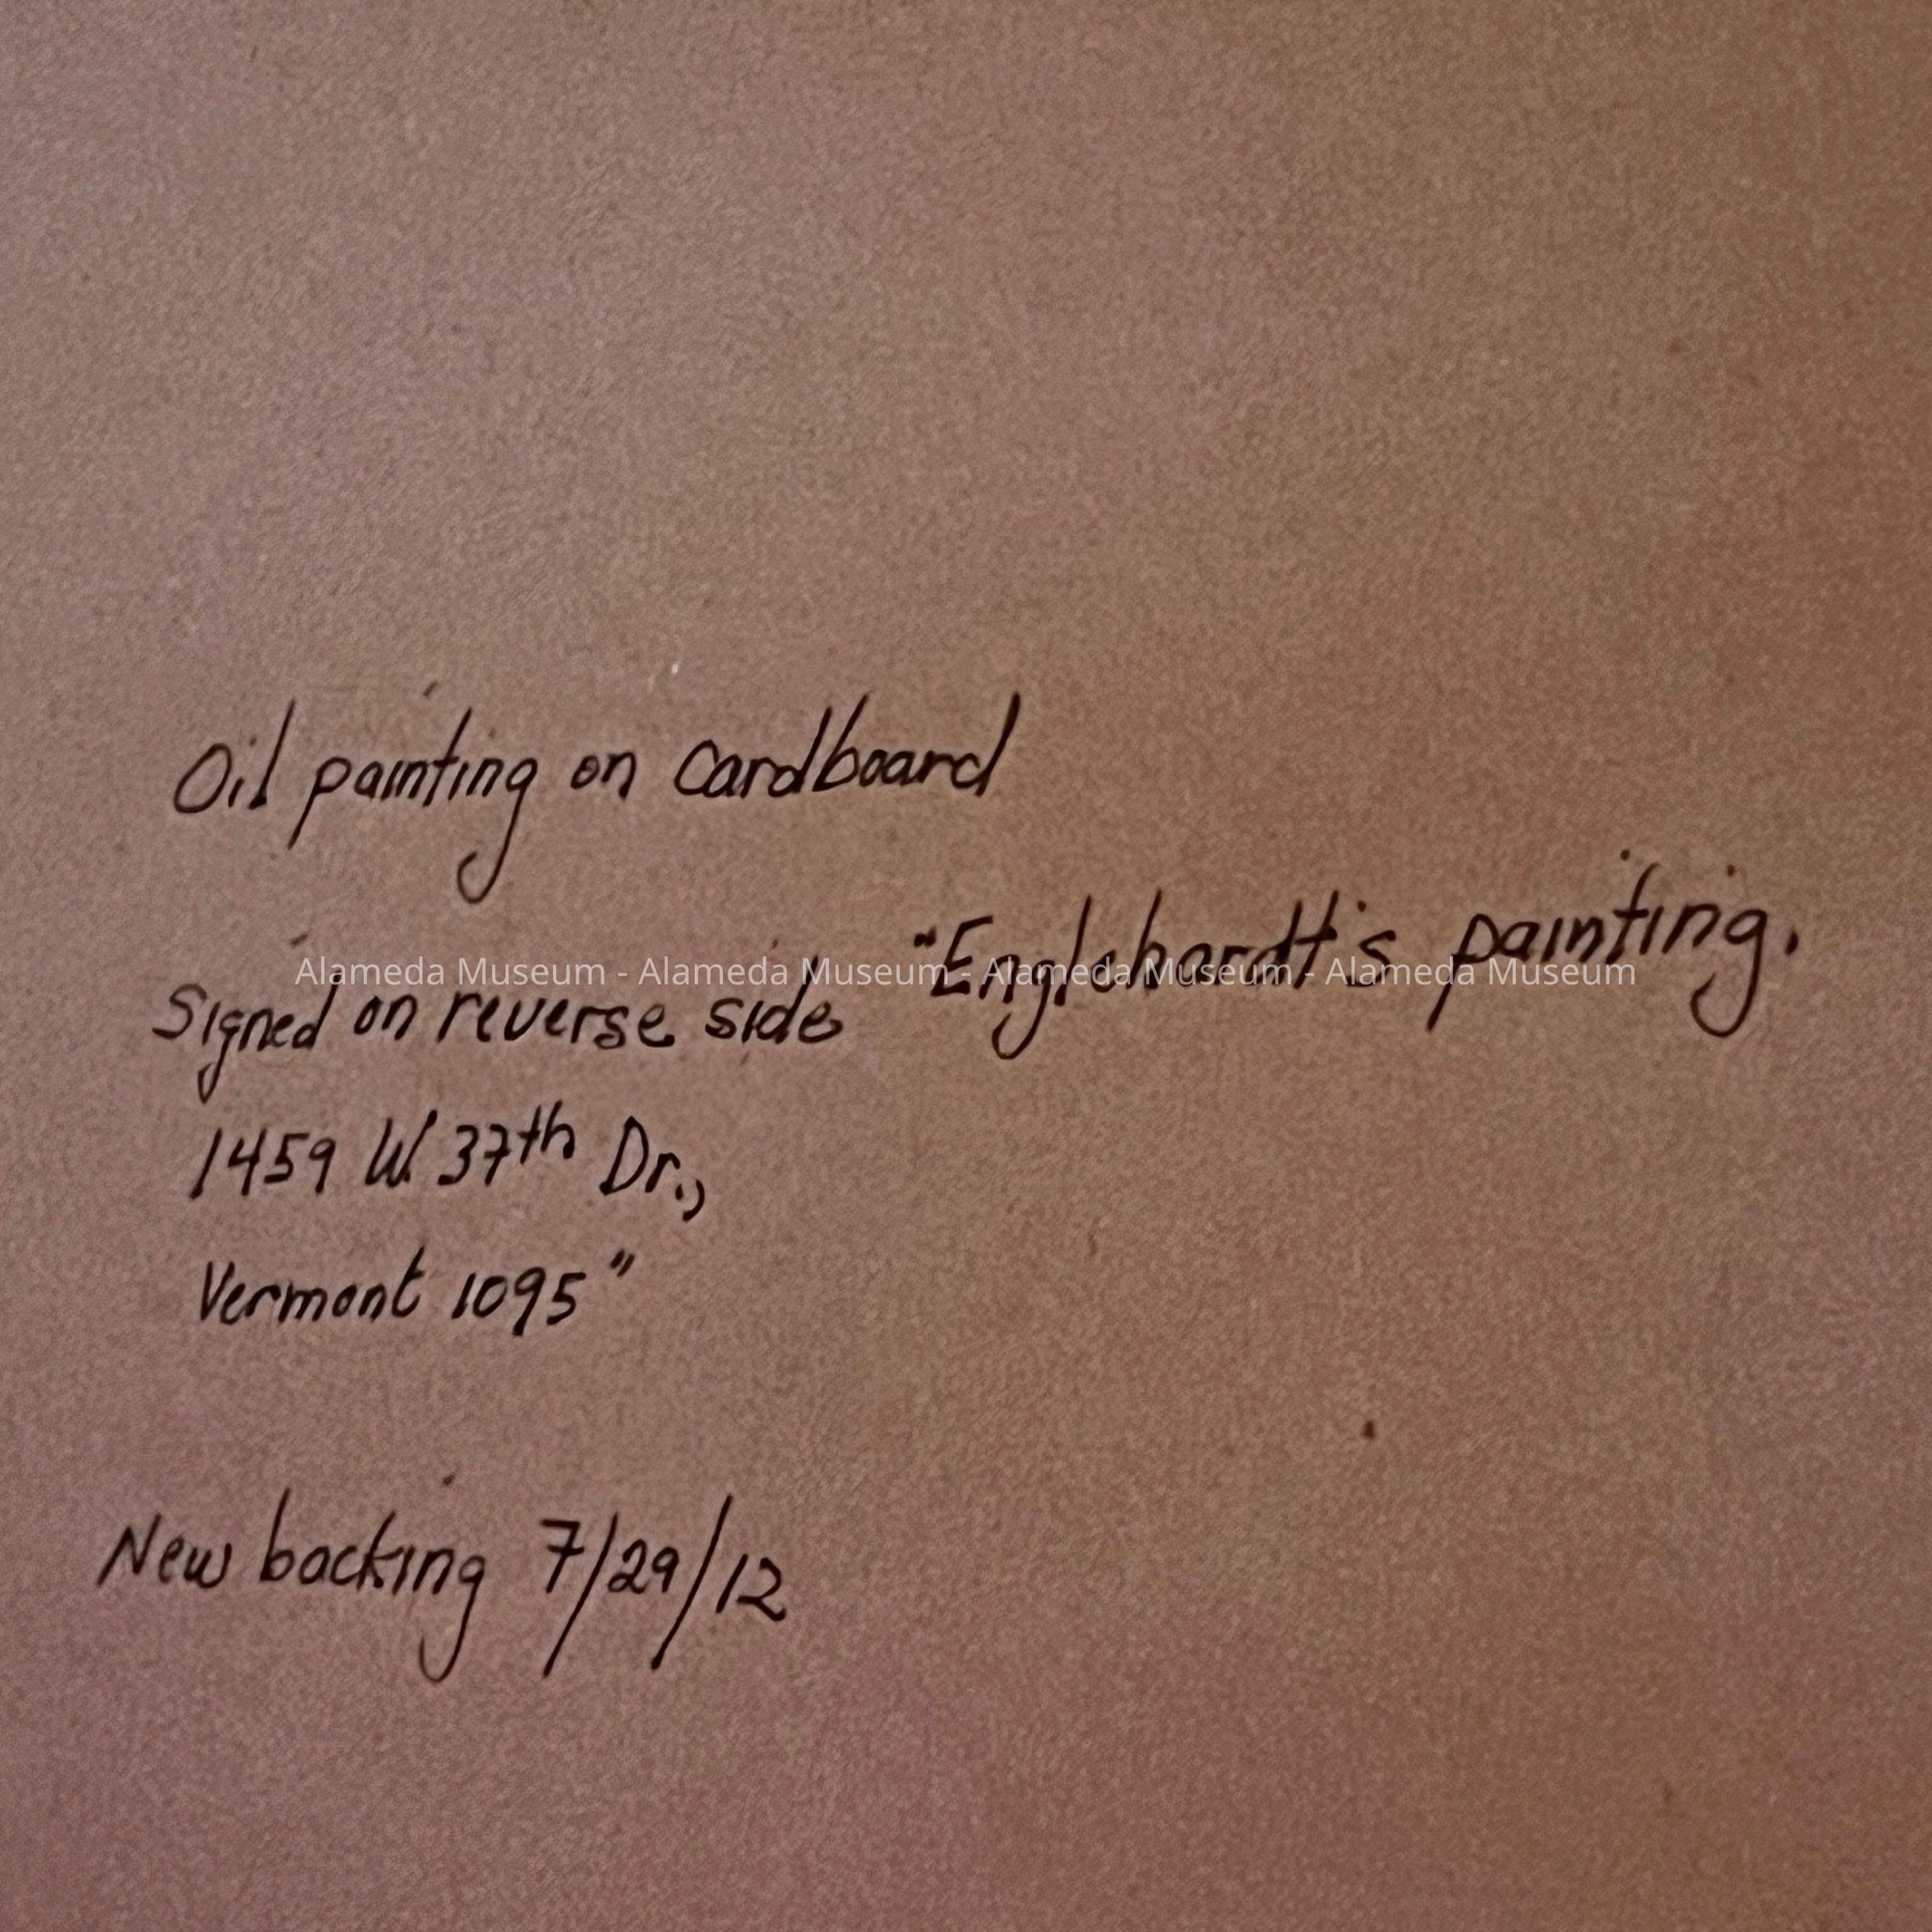 Oil painting on cardboard
Signed on reverse side "Englehardt's painting.
1459 W. 37th Dr.,
Vermont 1095"
New backing 7/29/12
Alameda Museum - Alameda Museum - Alameda Museum - Alameda Museum